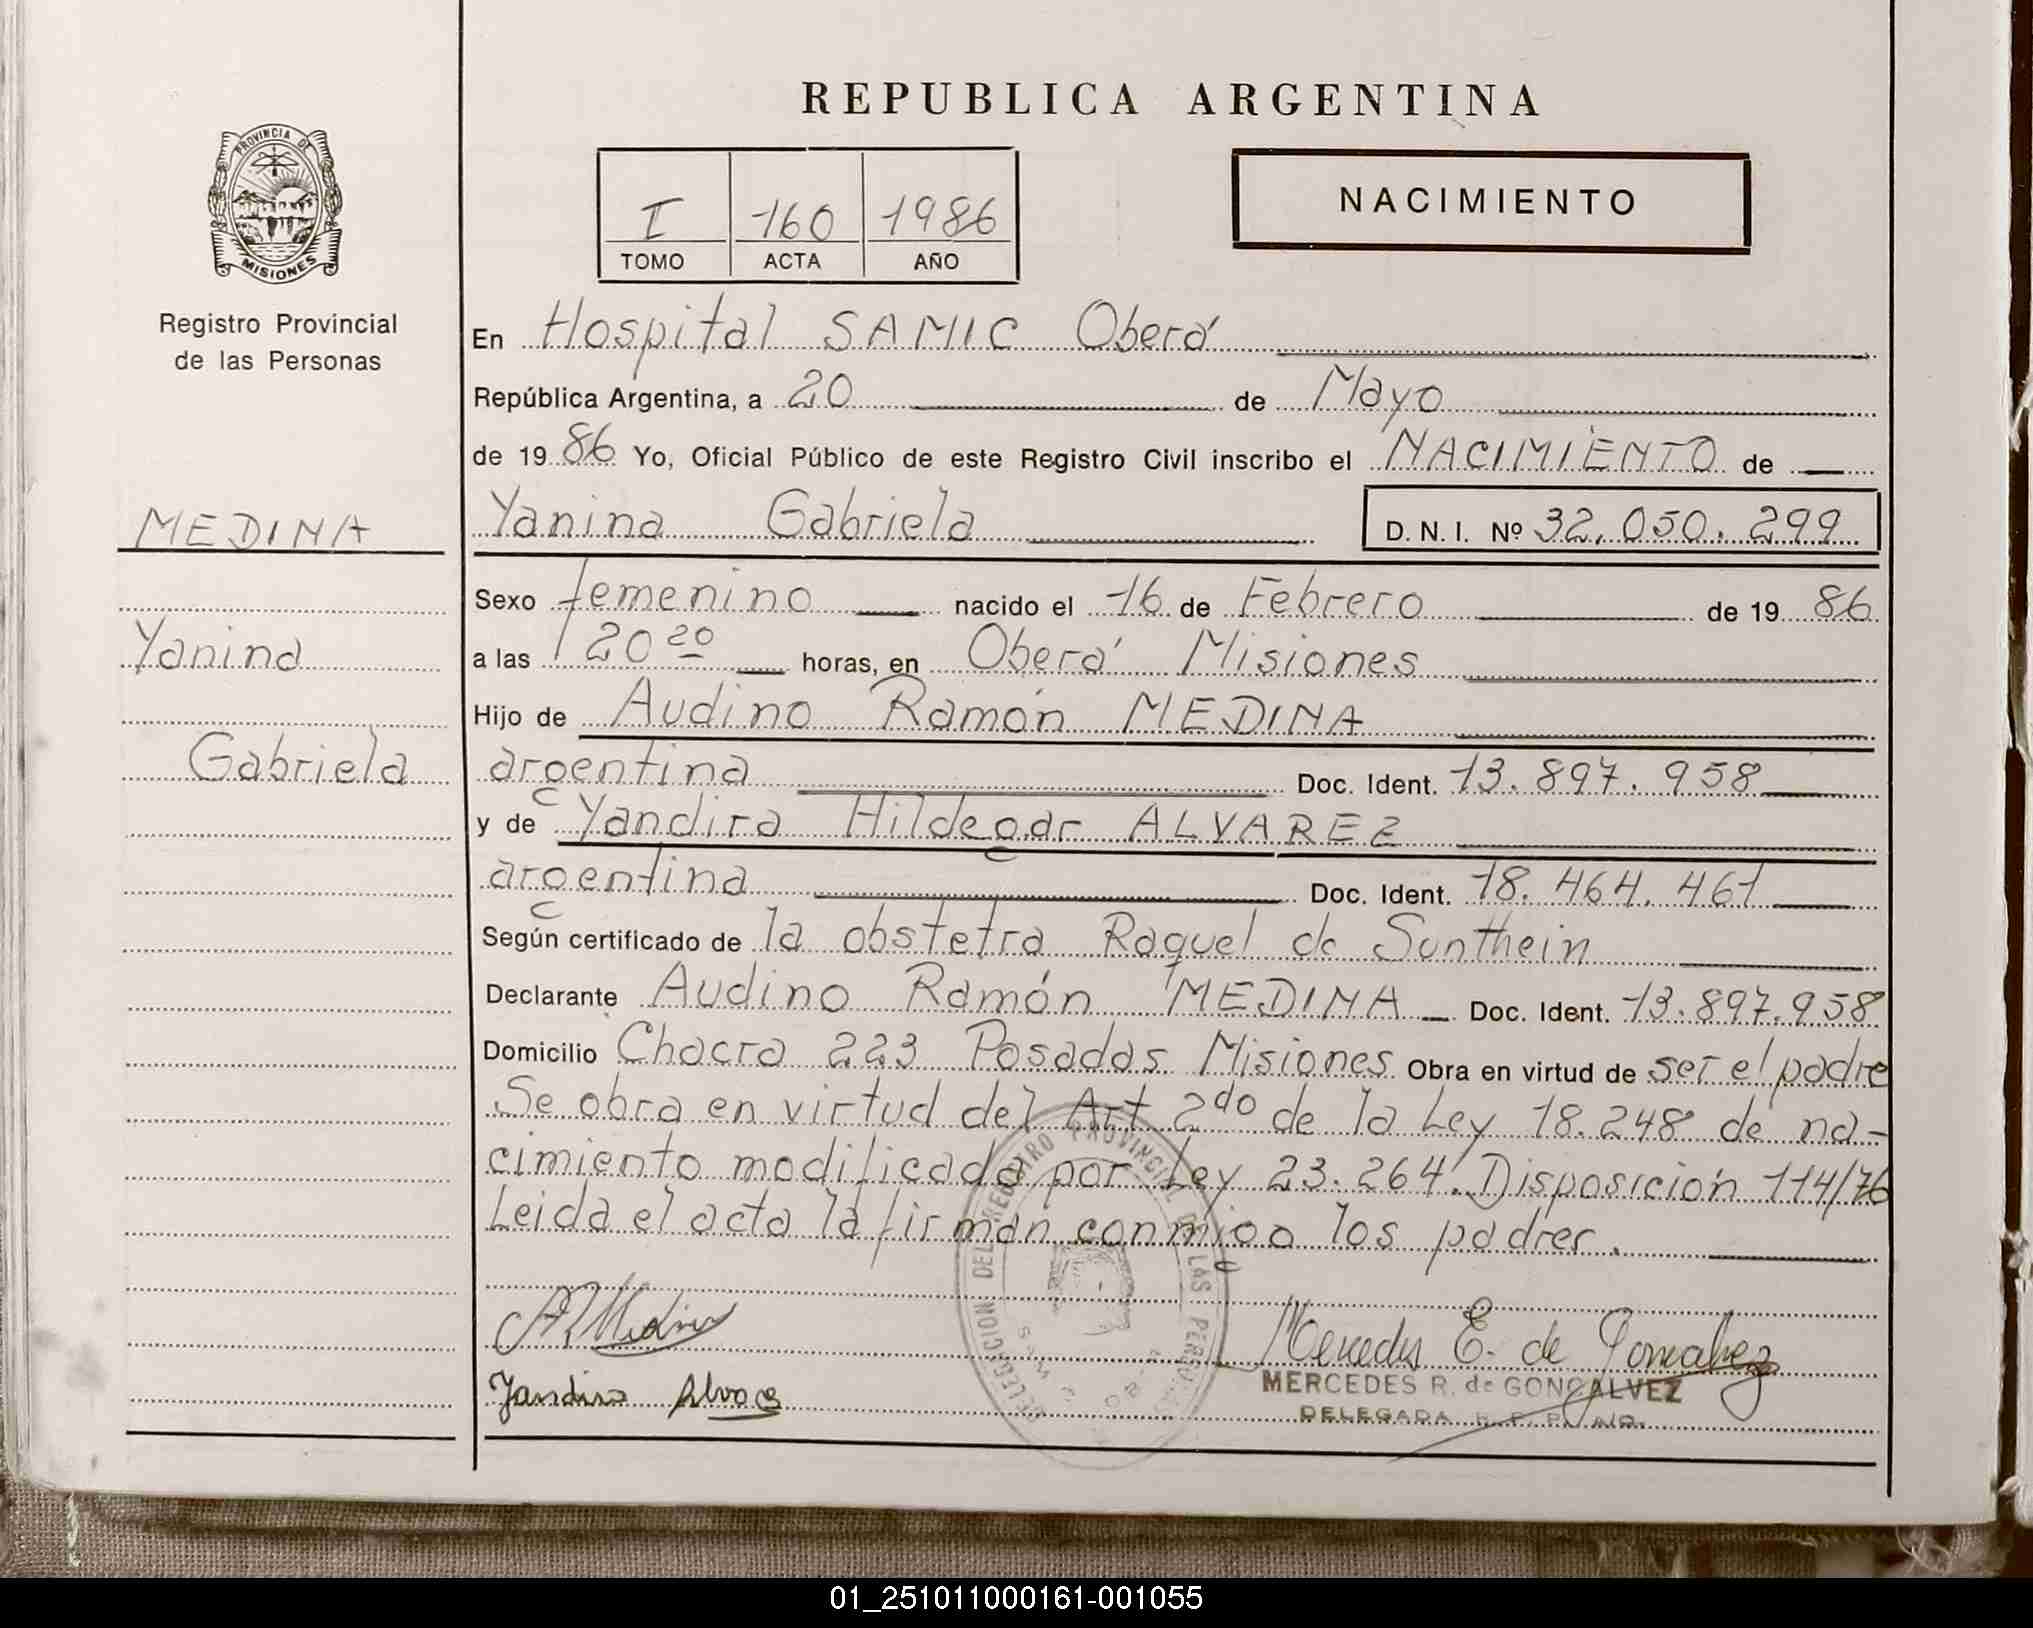 REPUBLICA ARGENTINA
PROVINCIA DE
MISIONES
Registro Provincial
de las Personas
I 160 1986
TOMO ACTA AÑO
NACIMIENTO
En Hospital SAMIC Oberá
República Argentina, a 20 de Mayo
de 1986 Yo, Oficial Público de este Registro Civil inscribo el NACIMIENTO de
MEDINA
Yanina
Gabriela
Yanina Gabriela D. N. I. Nº 32.050.299
Sexo femenino nacido el 16 de Febrero de 1986
a las 20 20 horas, en Oberá Misiones
Hijo de Audino Ramón MEDINA
argentina Doc. Ident. 13.897.958
y de Yandira Hildegar ALVAREZ
argentina Doc. Ident. 18.464.461
Según certificado de la obstetra Raquel de Sunthein
Declarante Audino Ramón MEDINA Doc. Ident. 13.897.958
Domicilio Chacra 223 Posadas Misiones Obra en virtud de ser el padre
Se obra en virtud del Art 2do de la Ley 18.248 de na-
cimiento modificada por Ley 23.264. Disposición 114/76
Leida el acta la firman conmigo los padres.
DELEGACION DEL REGISTRO PROVINCIAL DE LAS PERSONAS
A. Medina
Mercedes E. de Gonçalvez
Yandira Alvarez
MERCEDES R. de GONÇALVEZ
DELEGADA R. P. P.
01_251011000161-001055